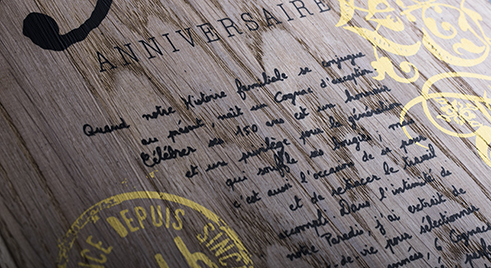 ANNIVERSAIRE
Quand notre Histoire familiale se conjugue
au présent naît un Cognac d'exception.
Célébrer ses 150 ans est un honneur
et un privilège pour la génération
qui souffle ses bougies ; mais
c'est aussi l'occasion de se
et de retracer le travail
accompli. Dans l'intimité de
notre Paradis, j'ai extrait de
de-vie pour sélectionner
6 Cognacs
DEPUIS SINC